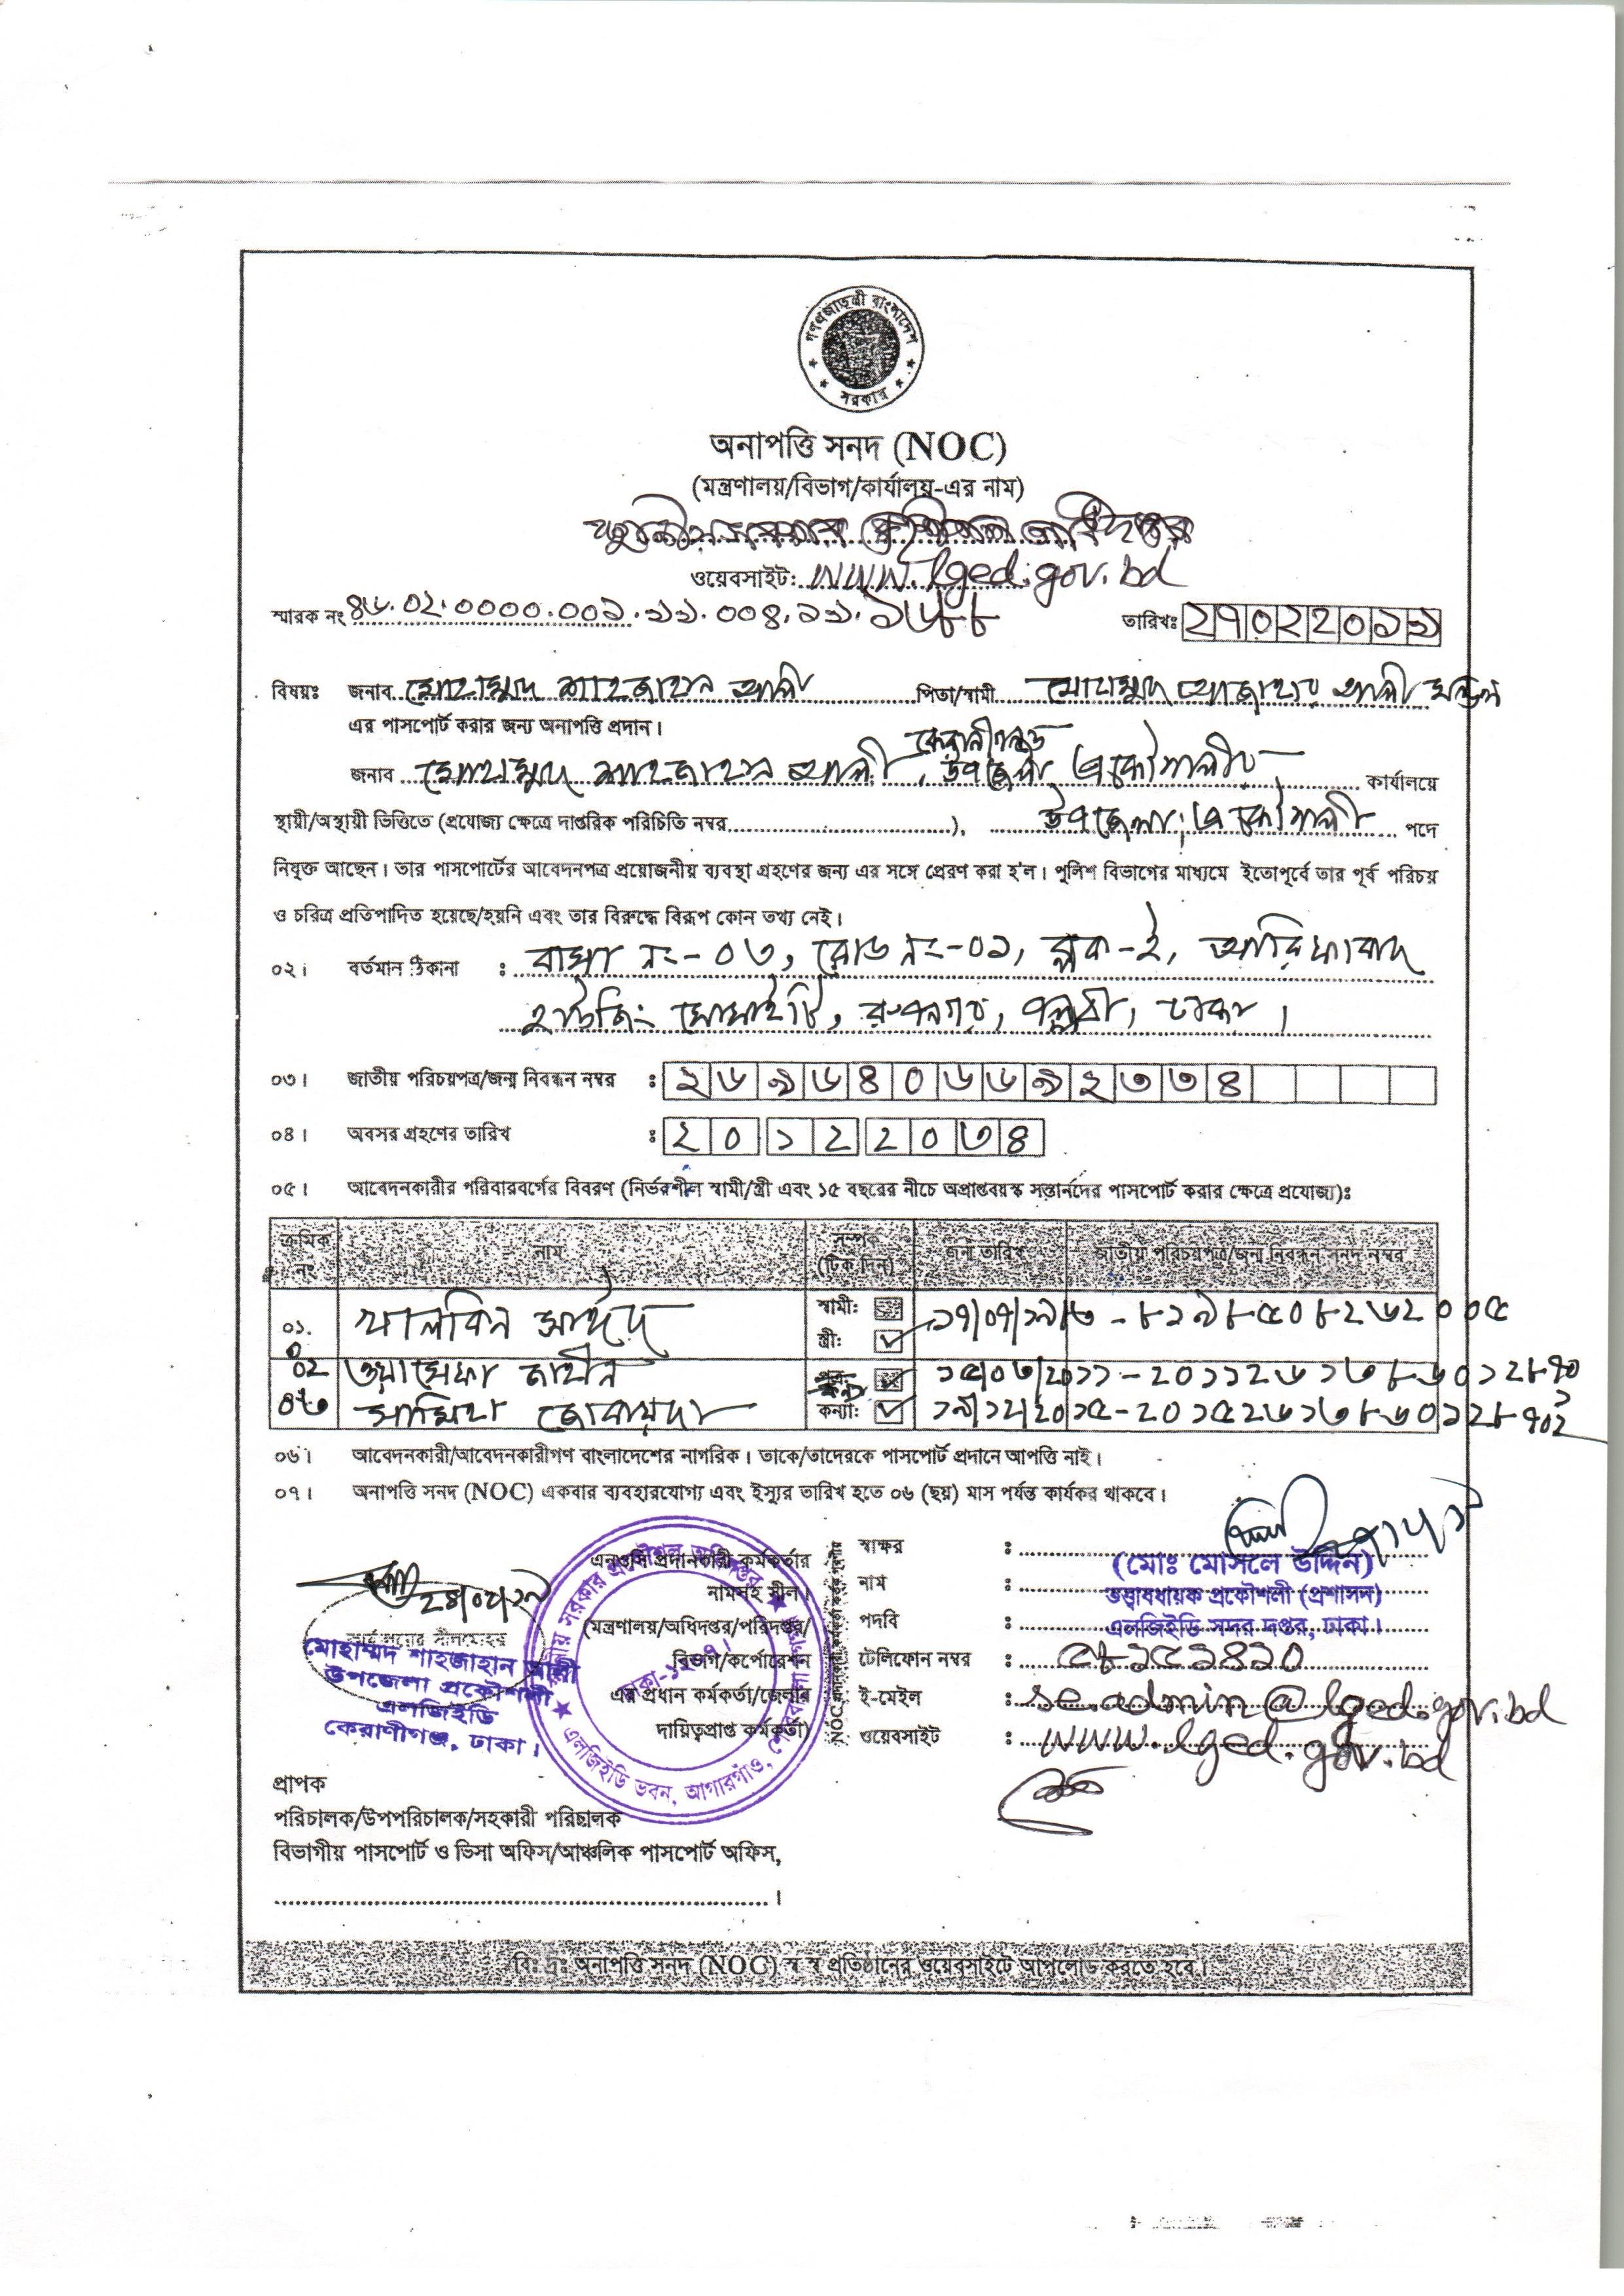 গণপ্রজাতন্ত্রী বাংলাদেশ
সরকার
অনাপত্তি সনদ (NOC)
(মন্ত্রণালয়/বিভাগ/কার্যালয়-এর নাম)
প্রকৌশল অধিদপ্তর
ওয়েবসাইট: www.lged.gov.bd
স্মারক নং ৪৬.০২.০০০০.০০১.১১.০০৪.১১.১৬৮৮ তারিখঃ ২৭০২২০১৯
বিষয়ঃ জনাব মোহাম্মদ শাহজাহান আলী পিতা/স্বামী মোহাম্মদ আজাহার আলী মন্ডল
এর পাসপোর্ট করার জন্য অনাপত্তি প্রদান।
কেরানীগঞ্জ
জনাব মোহাম্মদ শাহজাহান আলী, উপজেলা প্রকৌশলীর কার্যালয়ে
স্থায়ী/অস্থায়ী ভিত্তিতে (প্রযোজ্য ক্ষেত্রে দাপ্তরিক পরিচিতি নম্বর..............), উপজেলা প্রকৌশলী পদে
নিযুক্ত আছেন। তার পাসপোর্টের আবেদনপত্র প্রয়োজনীয় ব্যবস্থা গ্রহণের জন্য এর সঙ্গে প্রেরণ করা হ'ল। পুলিশ বিভাগের মাধ্যমে ইতোপূর্বে তার পূর্ব পরিচয়
ও চরিত্র প্রতিপাদিত হয়েছে/হয়নি এবং তার বিরুদ্ধে বিরূপ কোন তথ্য নেই।
০২। বর্তমান ঠিকানা : বাসা নং-০৩, রোড নং-০১, ব্লক-ই, আরিফাবাদ
হাউজিং সোসাইটি, রূপনগর, পল্লবী, ঢাকা।
০৩। জাতীয় পরিচয়পত্র/জন্ম নিবন্ধন নম্বর : ২৬৯৬৪০৬৬৯২৩৩৪
০৪। অবসর গ্রহণের তারিখ : ২০১২২০৩৪
০৫। আবেদনকারীর পরিবারবর্গের বিবরণ (নির্ভরশীল স্বামী/স্ত্রী এবং ১৫ বছরের নীচে অপ্রাপ্তবয়স্ক সন্তানদের পাসপোর্ট করার ক্ষেত্রে প্রযোজ্য)ঃ
ক্রমিক নং নাম সম্পর্ক (টিক দিন) জন্ম তারিখ জাতীয় পরিচয়পত্র/জন্ম নিবন্ধন সনদ নম্বর
স্বামী:
০১. সাঈদ স্ত্রী: ✓ ৮১৯৮৫০৮২৬২০০৫
০২ ওয়াসেফা জাহীন ✓ ১৫/০৩/২০১১
০৩ সামিহা জোবায়দা কন্যা: ✓ ১৯/১২/২০১৫
০৬। আবেদনকারী/আবেদনকারীগণ বাংলাদেশের নাগরিক। তাকে/তাদেরকে পাসপোর্ট প্রদানে আপত্তি নাই।
০৭। অনাপত্তি সনদ (NOC) একবার ব্যবহারযোগ্য এবং ইস্যুর তারিখ হতে ০৬ (ছয়) মাস পর্যন্ত কার্যকর থাকবে।
এনওসি প্রদানকারী কর্মকর্তার স্বাক্ষর :
নামসহ সীল। নাম : (মোঃ মোসলে উদ্দিন)
তত্ত্বাবধায়ক প্রকৌশলী (প্রশাসন)
(মন্ত্রণালয়/অধিদপ্তর/পরিদপ্তর/ পদবি : এলজিইডি সদর দপ্তর, ঢাকা।
বিভাগ/কর্পোরেশন টেলিফোন নম্বর : ৫৮১৫১৪১০
এর প্রধান কর্মকর্তা/জেলার ই-মেইল : se.admin@lged.gov.bd
দায়িত্বপ্রাপ্ত কর্মকর্তা) ওয়েবসাইট : www.lged.gov.bd
মোহাম্মদ শাহজাহান আলী
উপজেলা প্রকৌশলী
এলজিইডি
কেরাণীগঞ্জ, ঢাকা।
স্থানীয় সরকার প্রকৌশল অধিদপ্তর
এলজিইডি ভবন, আগারগাঁও, শেরেবাংলা
প্রাপক
পরিচালক/উপপরিচালক/সহকারী পরিচালক
বিভাগীয় পাসপোর্ট ও ভিসা অফিস/আঞ্চলিক পাসপোর্ট অফিস,
বিঃ দ্রঃ অনাপত্তি সনদ (NOC) স্ব স্ব প্রতিষ্ঠানের ওয়েবসাইটে আপলোড করতে হবে।